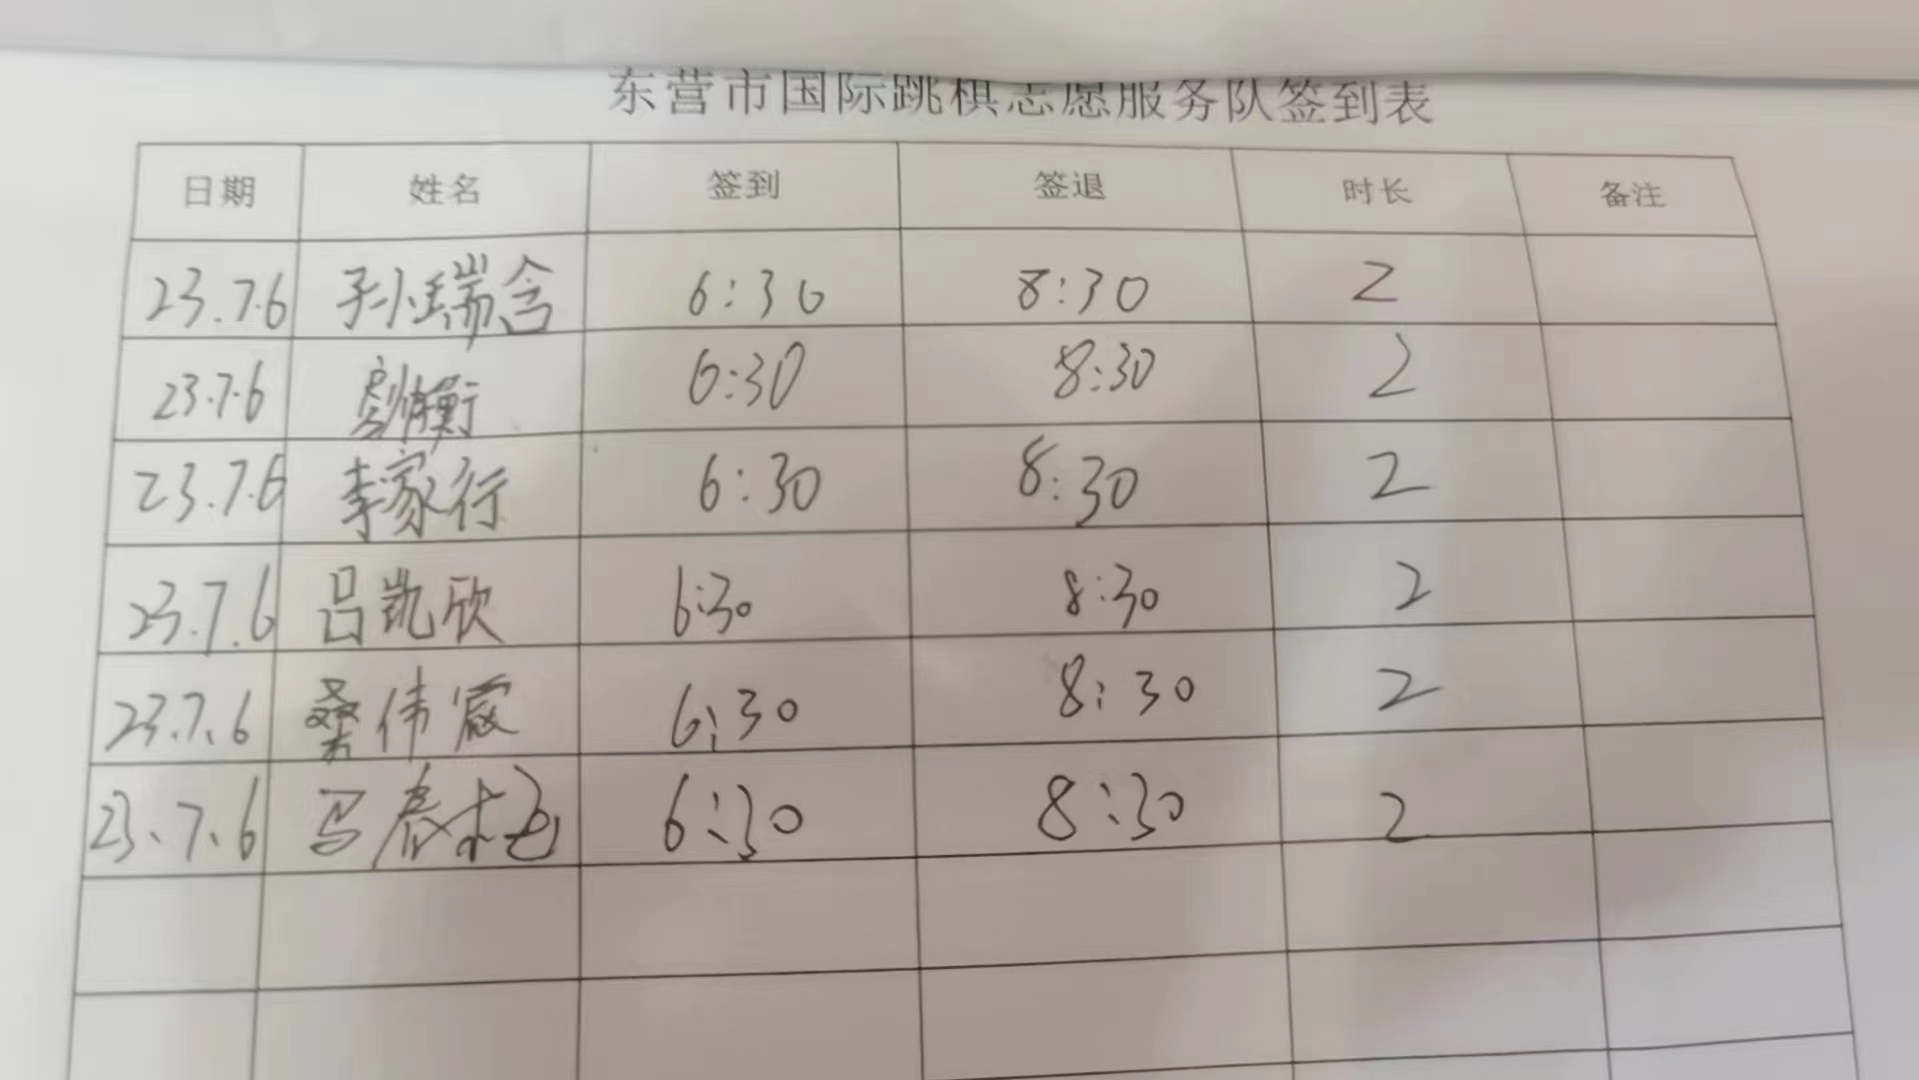 东营市国际跳棋志愿服务队签到表
日期 姓名 签到 签退 时长 备注
23.7.6 孙瑞含 6:30 8:30 2
23.7.6 6:30 8:30 2
23.7.6 李家行 6:30 8:30 2
23.7.6 吕凯欣 6:30 8:30 2
23.7.6 桑伟宸 6:30 8:30 2
23.7.6 马春艳 6:30 8:30 2